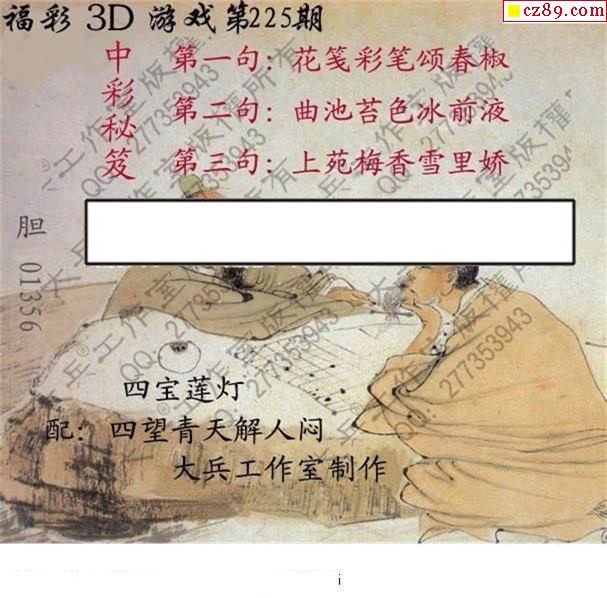 cz89.com
福彩 3D 游戏第225期
中彩秘笈
第一句：花笺彩笔颂春椒
第二句：曲池苔色冰前液
第三句：上苑梅香雪里娇
胆 01356
四宝莲灯
配：四望青天解人闷
大兵工作室制作
大兵工作室版权所有
QQ：277353943
i